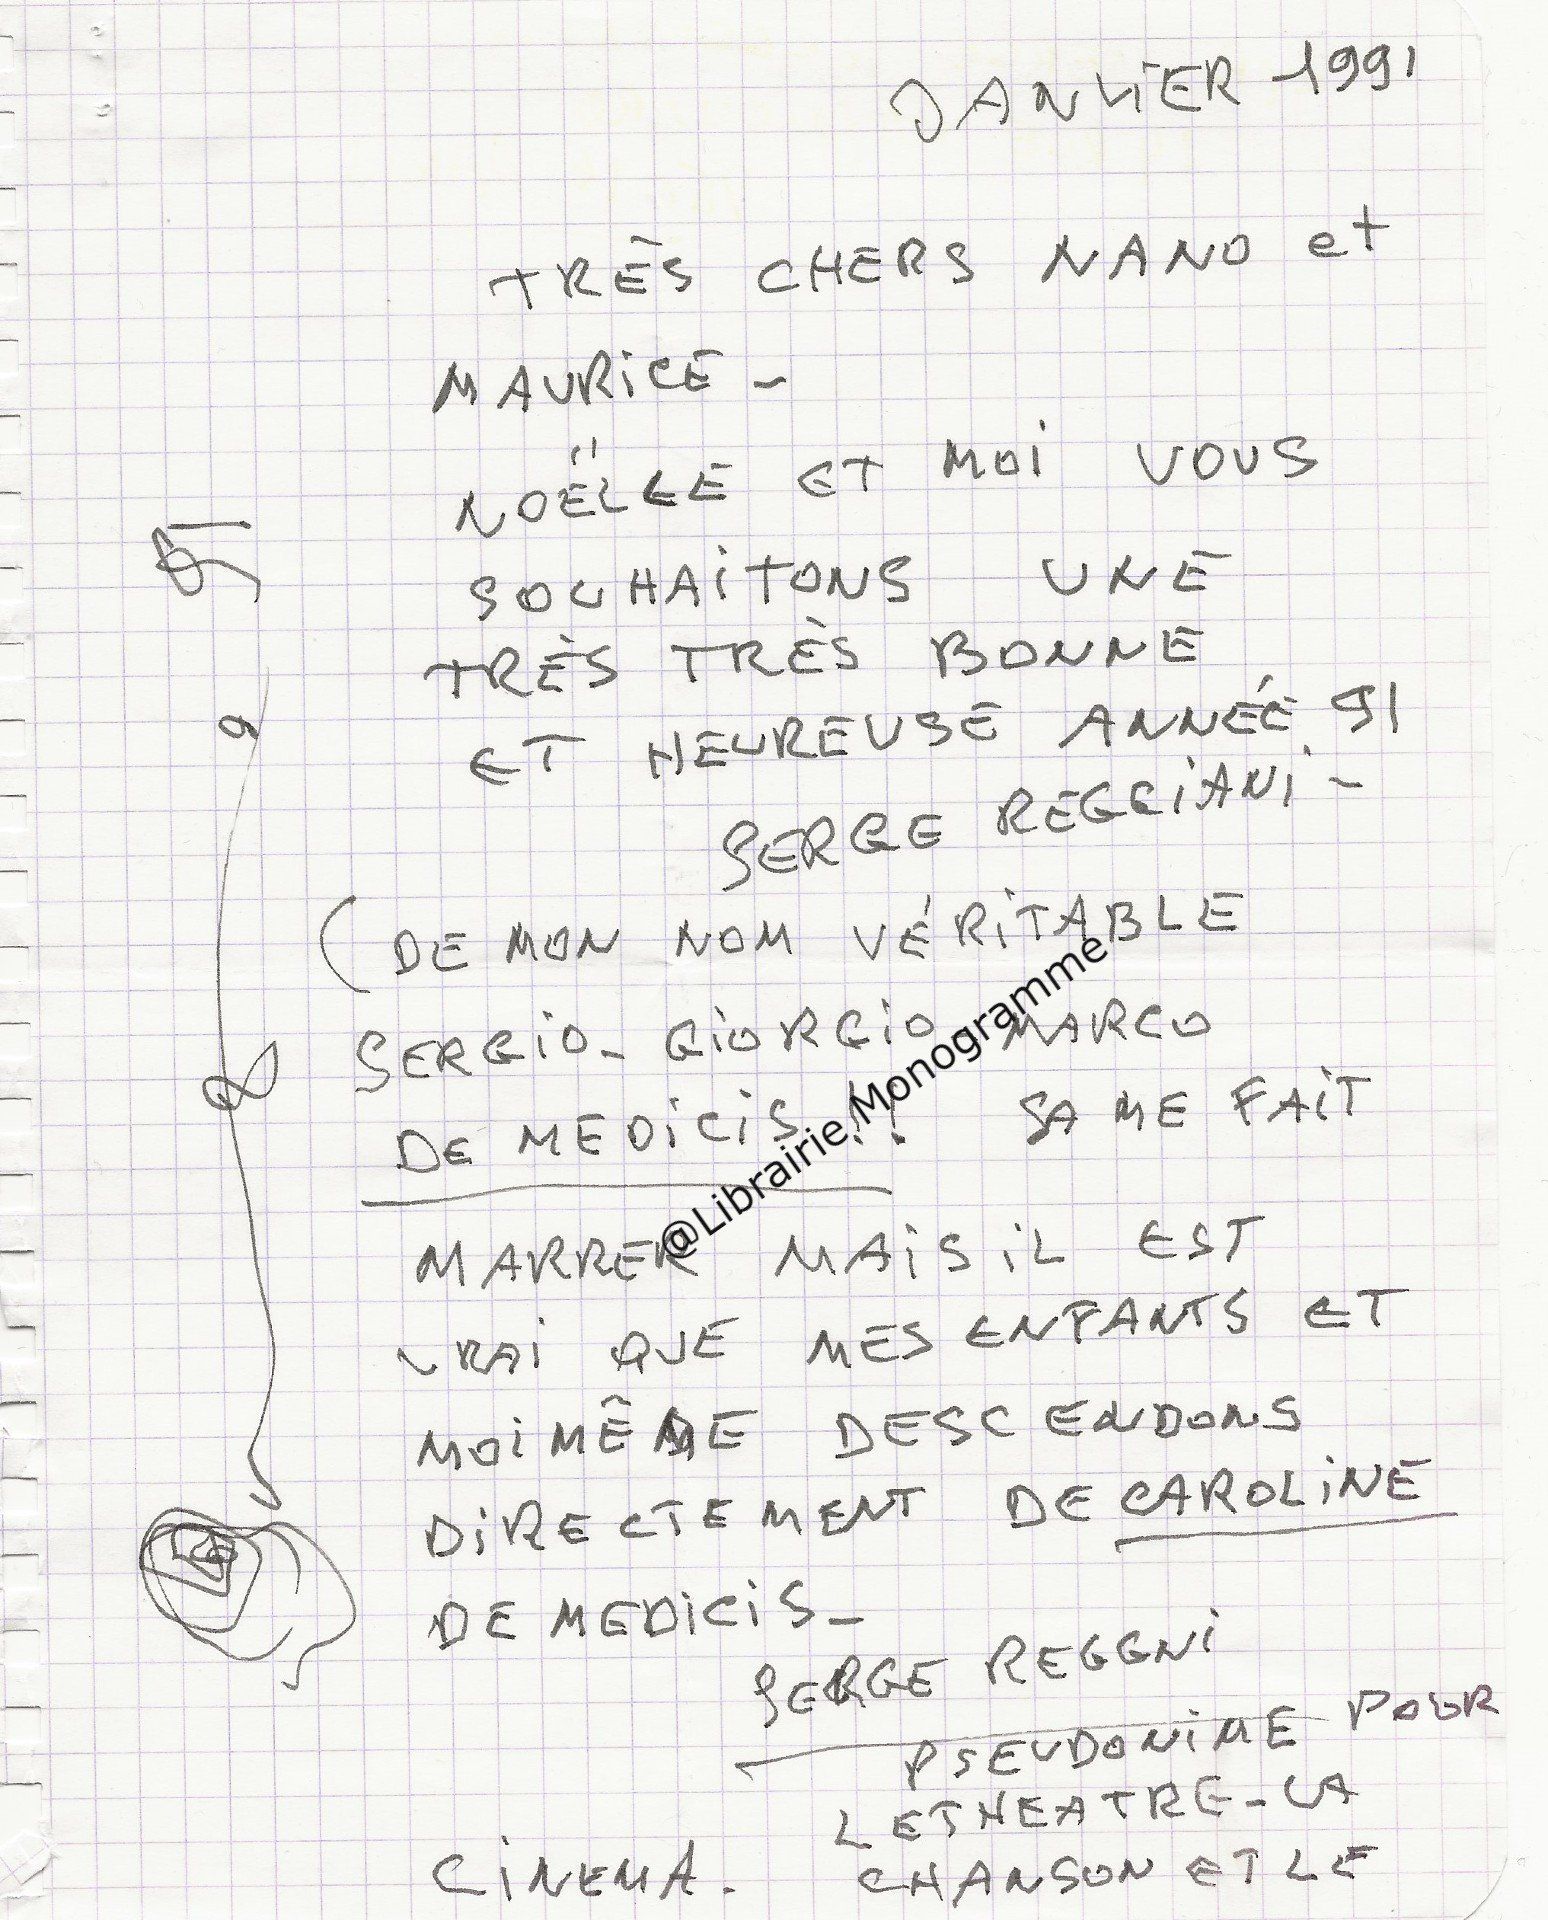 JANVIER 1991
TRÈS CHERS NANO et
MAURICE -
NOËLLE ET MOI VOUS
SOUHAITONS UNE
TRÈS TRÈS BONNE
ET HEUREUSE ANNÉE 91
SERGE REGGIANI -
(DE MON NOM VÉRITABLE
SERGIO - GIORGIO MARCO
DE MEDICIS !! SA ME FAIT
MARRER MAIS IL EST
VRAI QUE MES ENFANTS ET
MOI MÊME DESCENDONS
DIRECTEMENT DE CAROLINE
DE MEDICIS -
SERGE REGGNI
PSEUDONIME POUR
LE THEATRE - LA
CHANSON ET LE
CINEMA.
@Librairie.Monogramme